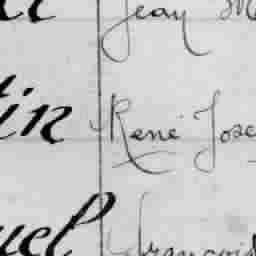 Jean M
in René Jose
uel François